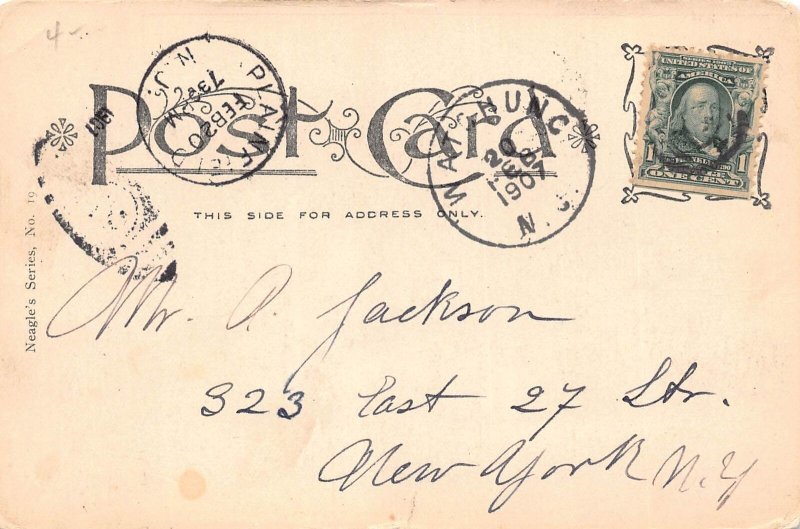 4-
Post Card
THIS SIDE FOR ADDRESS ONLY.
Neagle's Series, No. 19
PLAINFIELD
N.J.
FEB 20
1907
WATCHUNG
FEB
20
1907
N.J.
SERIES 1902
UNITED STATES OF
AMERICA
FRANKLIN
1 1
ONE CENT
Mr. O. Jackson
323 East 27 Str.
New York N.Y